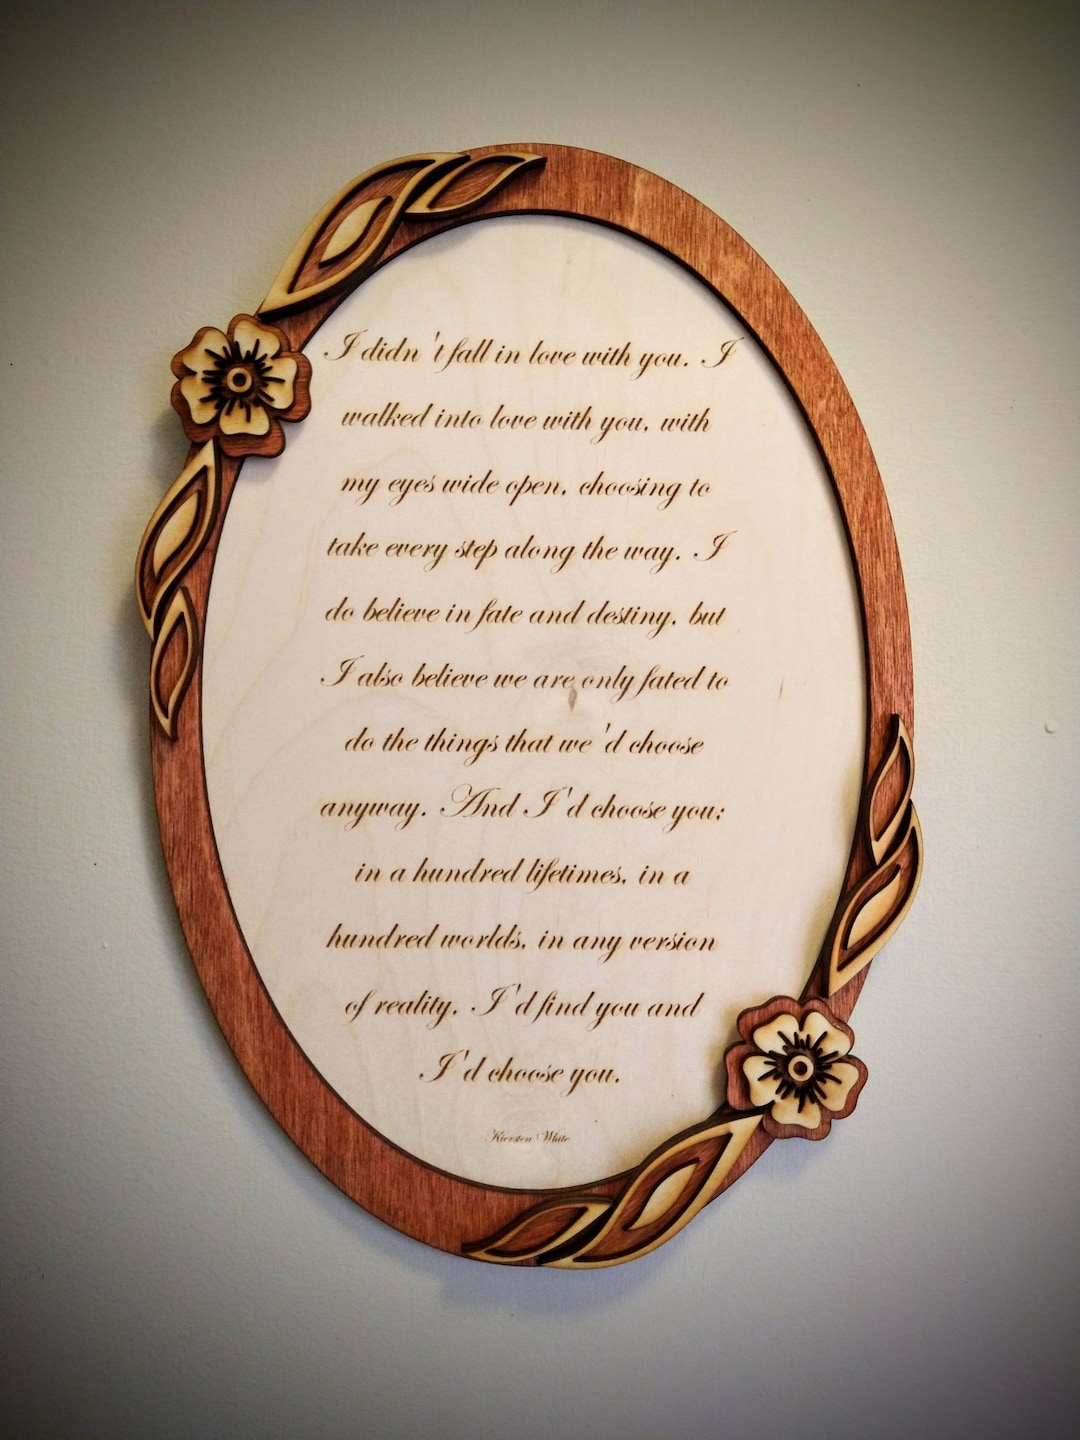 I didn't fall in love with you. I
walked into love with you, with
my eyes wide open, choosing to
take every step along the way. I
do believe in fate and destiny, but
I also believe we are only fated to
do the things that we'd choose
anyway. And I'd choose you;
in a hundred lifetimes, in a
hundred worlds, in any version
of reality, I'd find you and
I'd choose you.
Kiersten White